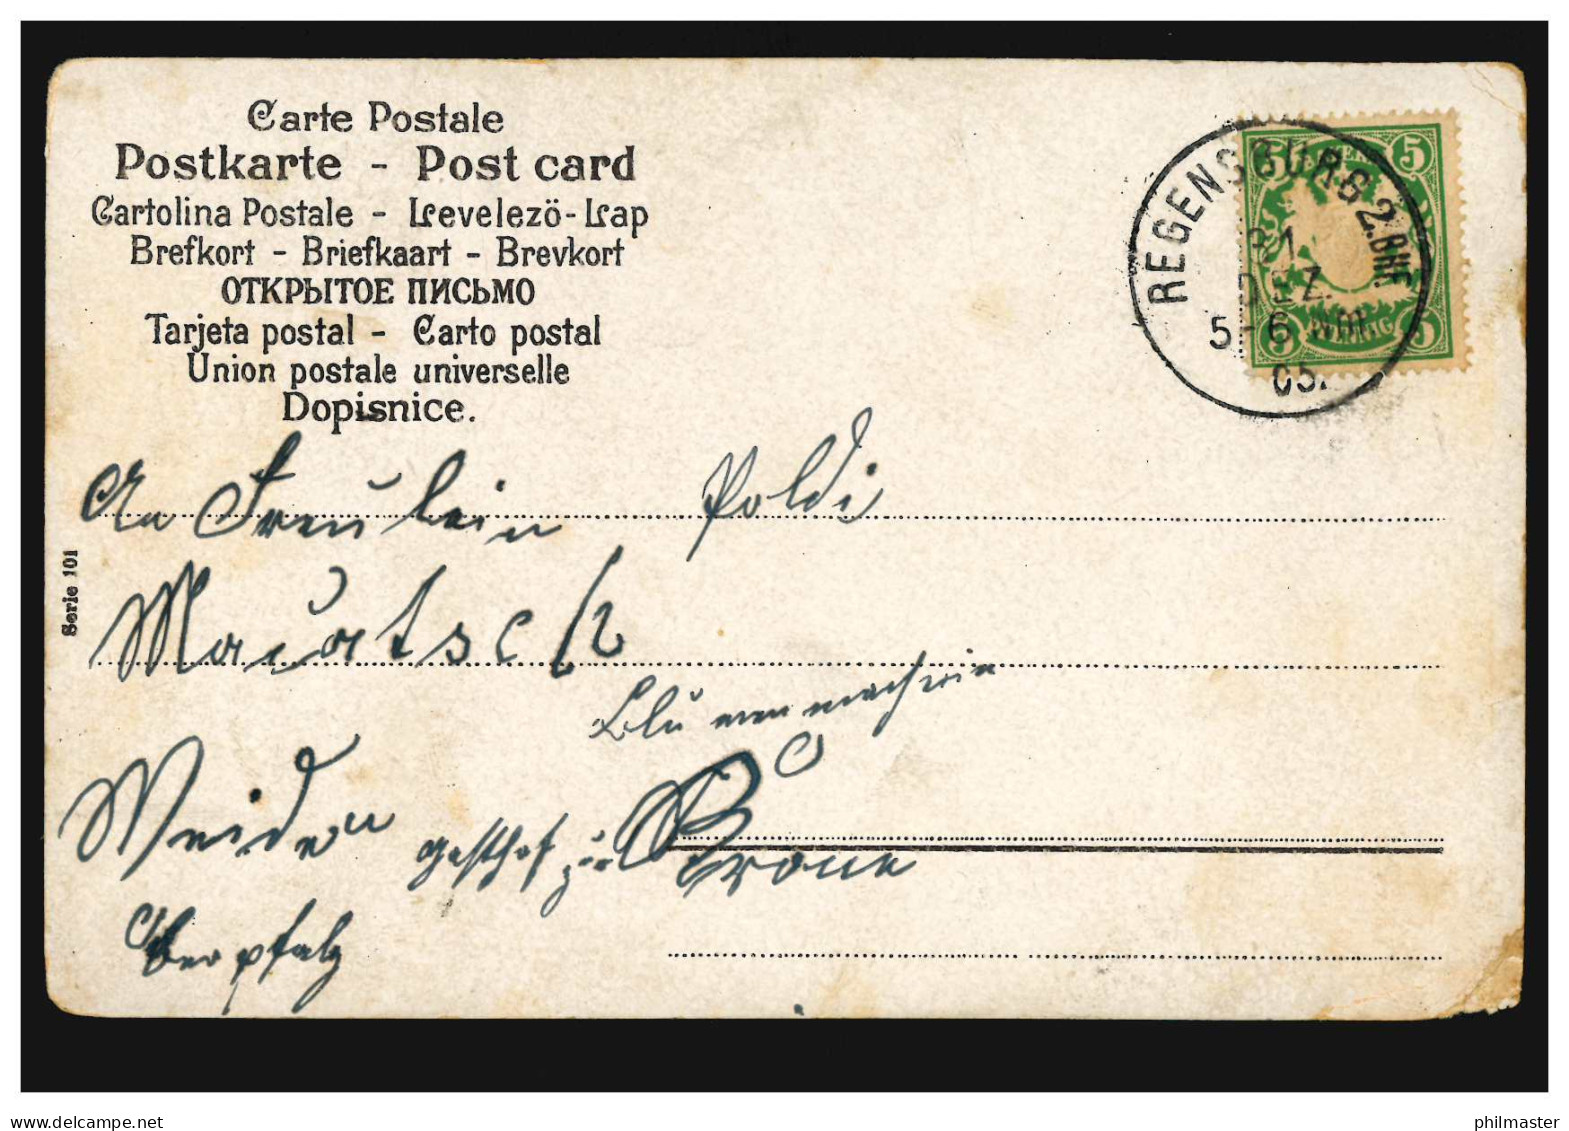 Carte Postale
Postkarte - Post card
Cartolina Postale - Levelezö-Lap
Brefkort - Briefkaart - Brevkort
ОТКРЫТОЕ ПИСЬМО
Tarjeta postal - Carto postal
Union postale universelle
Dopisnice.
REGENSBURG 2.BHF.
31
DEZ.
5-6 Nm.
05.
5 BAYERN 5
5 PFENNIG 5
An Freulein Poldi
Serie 101
Mauatsch
Blu men mach rin
Weiden gasthof zur Krone
Oberpfalz
delcampe.net
philmaster